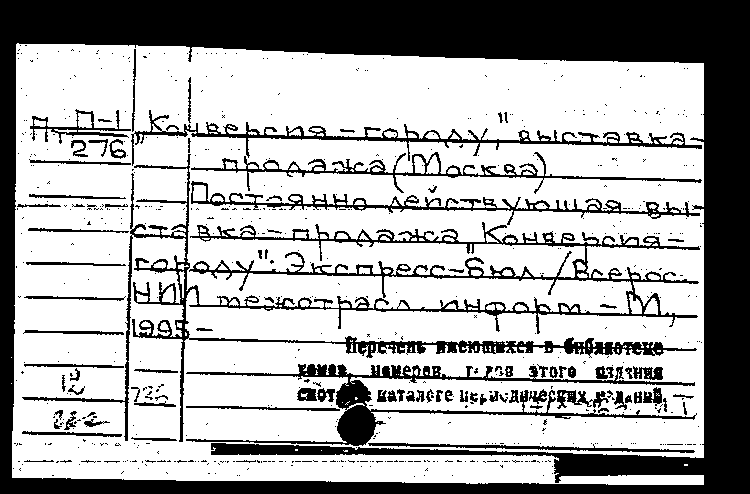 Пт П-1 „Конверсия – городу," выставка-
276 продажа (Москва)
Постоянно действующая вы-
ставка – продажа „Конверсия –
городу": Экспресс-бюл. / Всерос.
НИИ межотрасл. информ. – М.,
1995 –
Перечень имеющихся в библиотеке
томов, номеров, годов этого издания
смотри в каталоге периодических изданий.
12
736